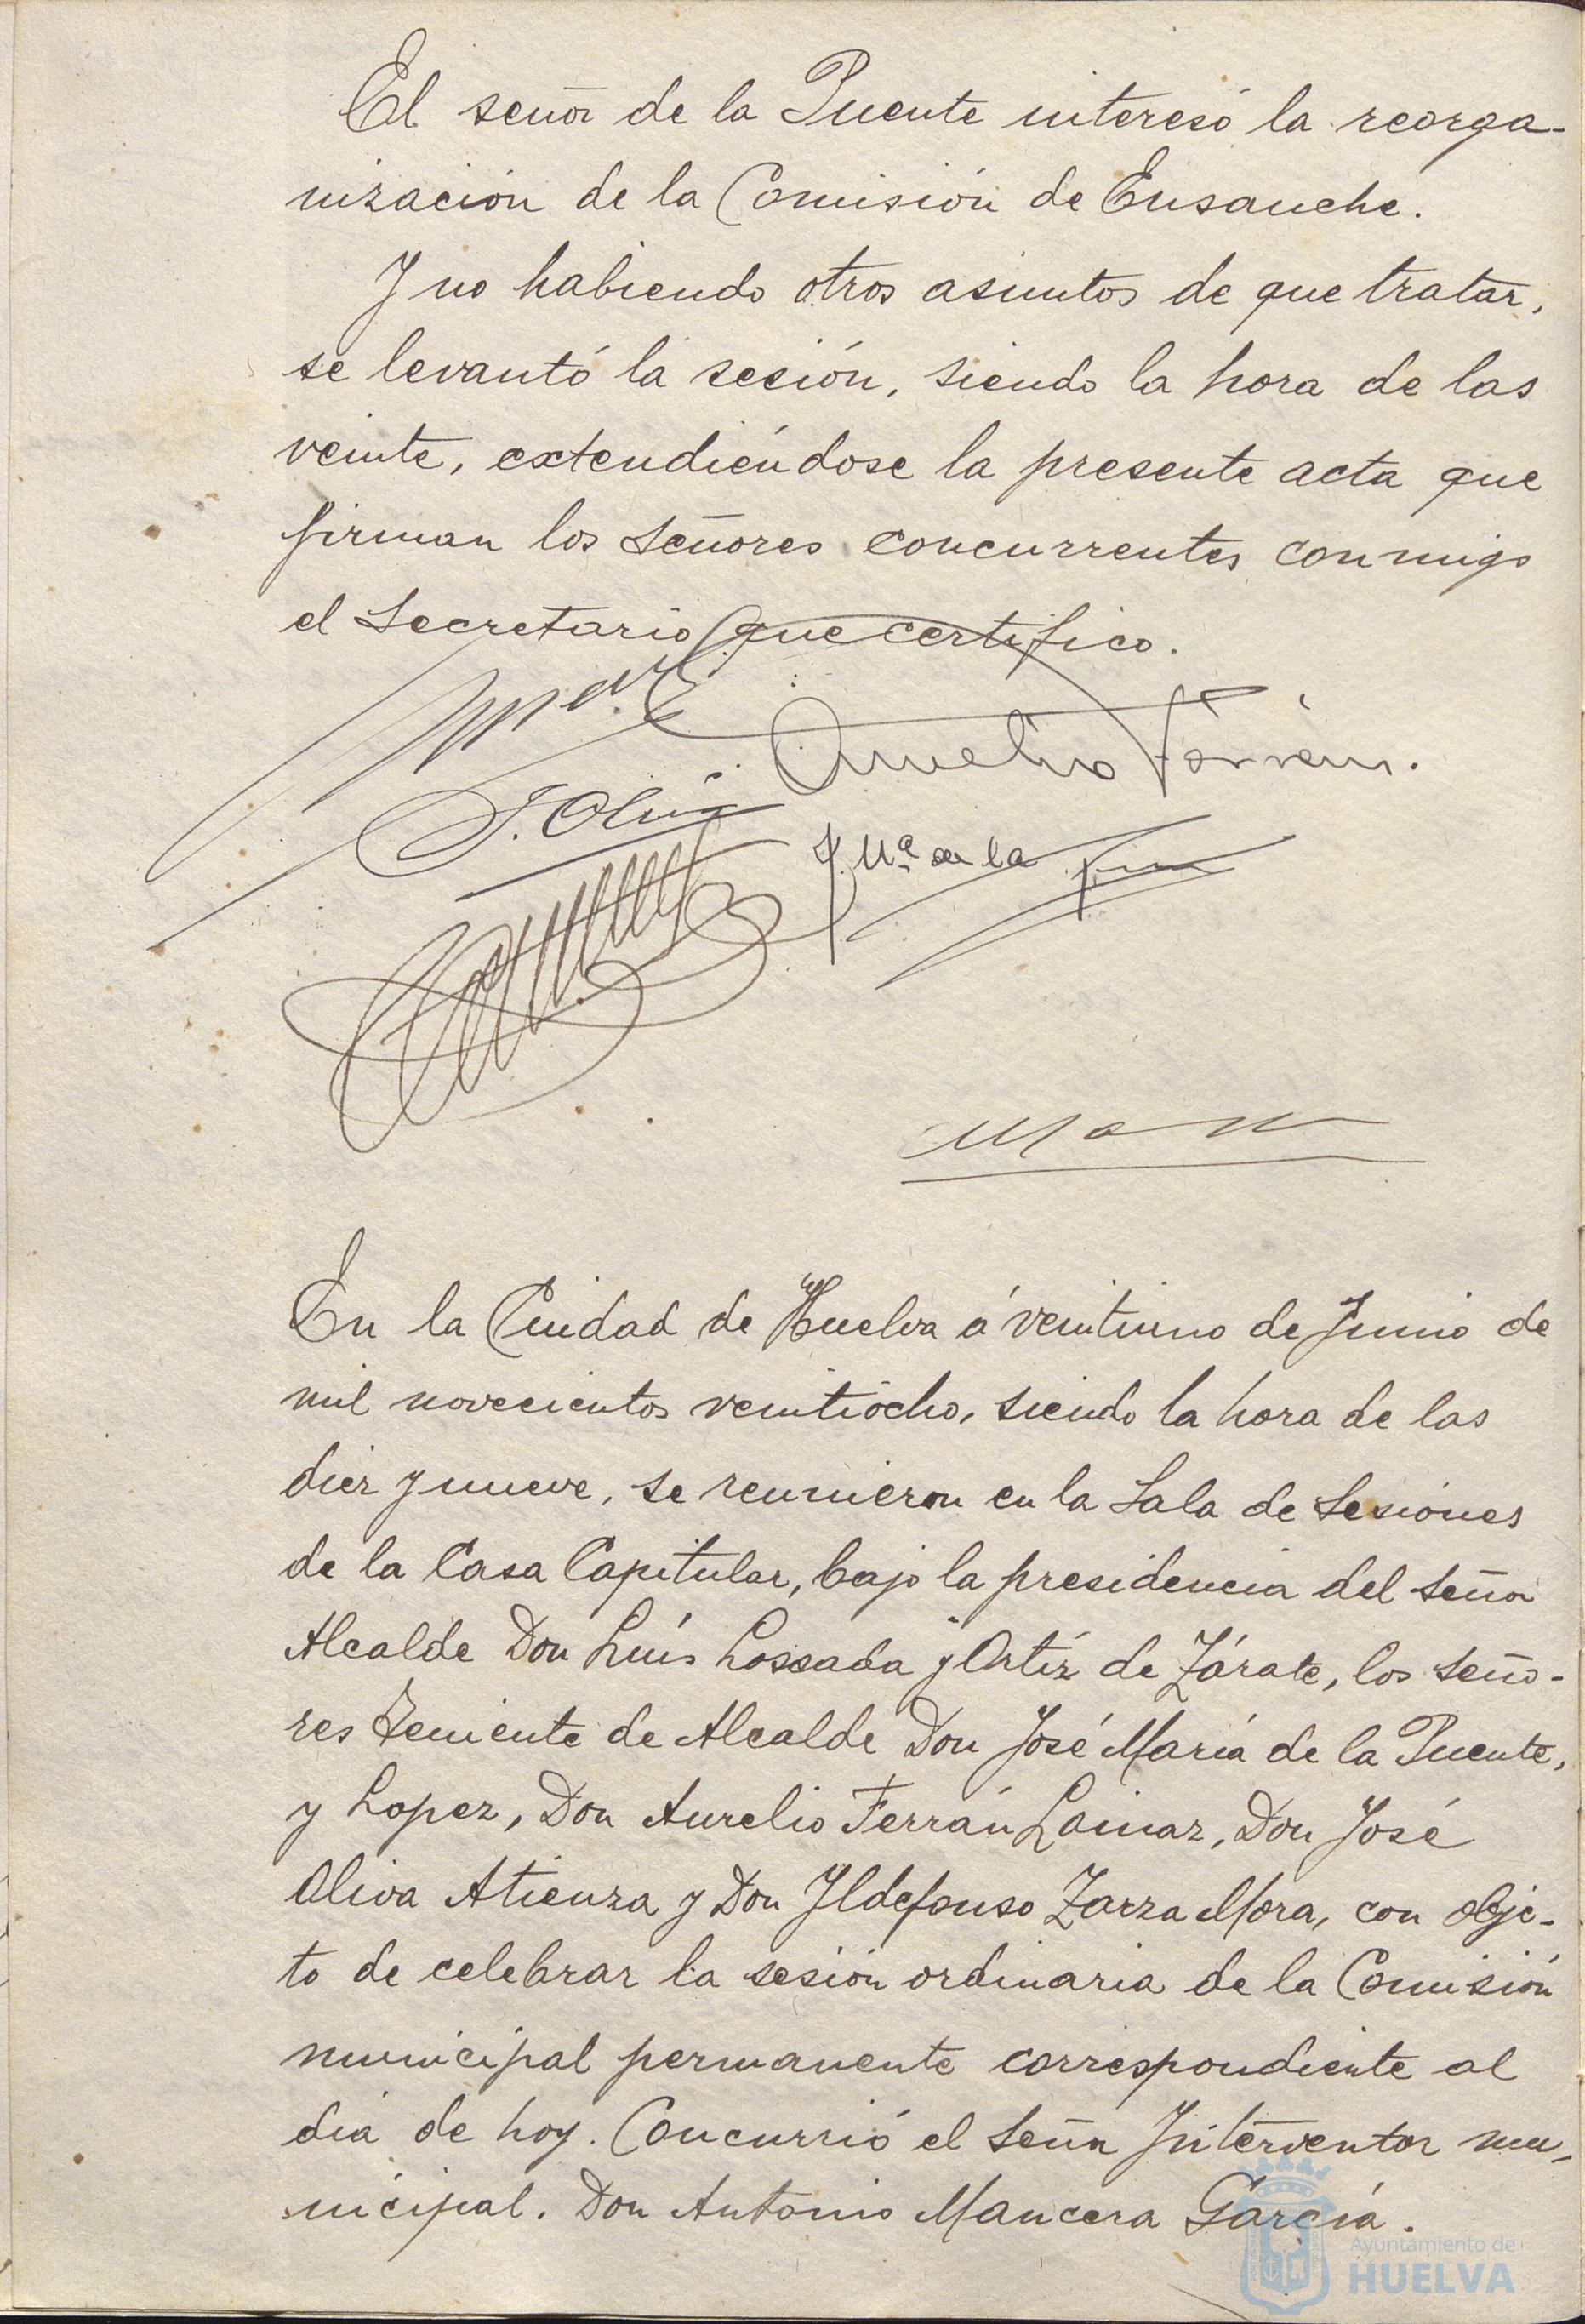 El señor de la Puente interesó la reorga-
nización de la Comisión de Ensanche.
Y no habiendo otros asuntos de que tratar,
se levantó la sesión, siendo la hora de las
veinte, extendiéndose la presente acta que
firman los señores concurrentes conmigo
el Secretario que certifico.
Aurelio Ferrán.
J. Oliva
J. Mª de la Puente
En la Ciudad de Huelva á veintiuno de Junio de
mil novecientos veintiocho, siendo la hora de las
diez y nueve, se reunieron en la Sala de Sesiones
de la Casa Capitular, bajo la presidencia del señor
Alcalde Don Luís Lossada y Ortíz de Zárate, los seño-
res Teniente de Alcalde Don José María de la Puente,
y Lopez, Don Aurelio Ferrán Lainaz, Don José
Oliva Atienza y Don Yldefonso Zarza Mora, con obje-
to de celebrar la sesión ordinaria de la Comisión
municipal permanente correspondiente al
día de hoy. Concurrió el señor Interventor mu-
nicipal. Don Antonio Mancera García.
Ayuntamiento de
HUELVA